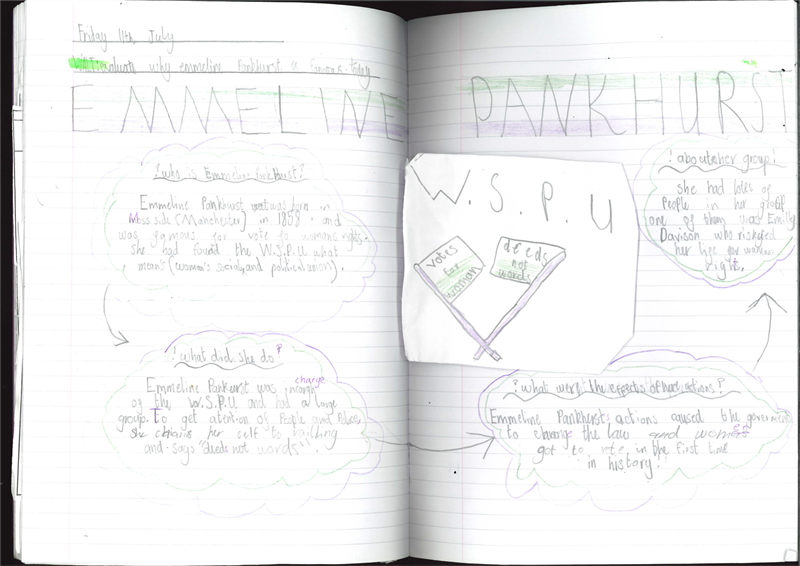 Friday 11th July
why emmeline Pankhurst is famous today
EMMELINE PANKHURST
! who is Emmeline Pankhurst?
Emmeline Pankhurst was born in
Moss side (Manchester) in 1858 and
was famous for vote for womans rights.
she had found the W.S.P.U what
means (woman's social and political union).
! what did she do?
Emmeline Pankurst was incarge charge
of the W.S.P.U and had a large
group. To get attention of People and Police
she chains her self to building
and says "deeds not words".
W.S.P.U
votes
for
woman
deeds
not
words
! what were the effects of her actions?
Emmeline Pankhursts actions caused the goverment
to change the law and women
got to vote in the first time
in history!
! about her group!
she had lots of
People in her group
one of them was Emily
Davison who risked
her life for women
right.